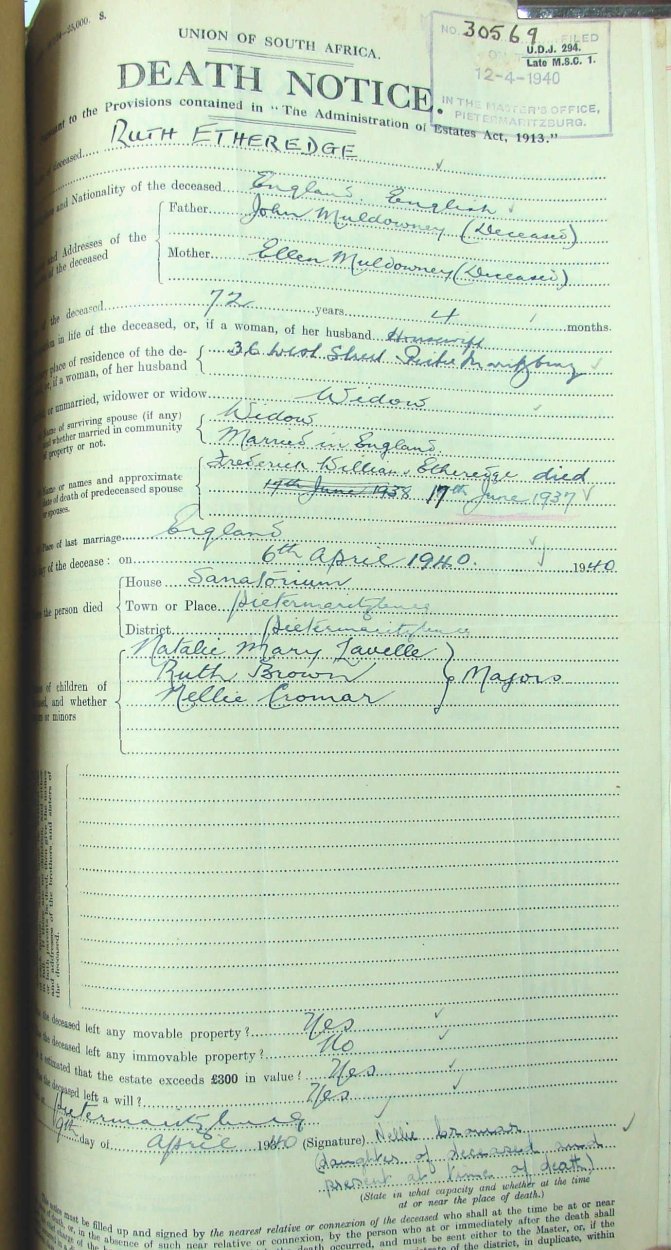 25,000. S.
UNION OF SOUTH AFRICA.
NO. 30569 FILED
U.D.J. 294.
Late M.S.C. 1.
12-4-1940
IN THE MASTER'S OFFICE,
PIETERMARITZBURG.
DEATH NOTICE.
to the Provisions contained in "The Administration of Estates Act, 1913."
of deceased RUTH ETHEREDGE
and Nationality of the deceased England. English
and Addresses of the
of the deceased
Father John Muldowney (Deceased)
Mother Ellen Muldowney (Deceased)
of the deceased 72 years 4 months.
in life of the deceased, or, if a woman, of her husband Housewife
place of residence of the de-
if a woman, of her husband
36 West Street Pietermaritzburg
or unmarried, widower or widow Widow
Name of surviving spouse (if any)
and whether married in community
of property or not.
Widow
Married in England
Name or names and approximate
date of death of predeceased spouse
or spouses.
Frederick William Etheredge died
17th June 1938 17th June 1937
Place of last marriage England
of the decease: on 6th April 1940. 1940
the person died
House Sanatorium
Town or Place Pietermaritzburg
District Pietermaritzburg
of children of
and whether
or minors
Natalie Mary Lavelle
Ruth Brown
Nellie Cromar
Majors
and addresses of the brothers and sisters of
the deceased.
the deceased left any movable property? Yes
the deceased left any immovable property? No
estimated that the estate exceeds £300 in value? Yes
the deceased left a will? Yes
at Pietermaritzburg
9th day of April 1940 (Signature) Nellie Cromar
(daughter of deceased and
present at time of death)
(State in what capacity and whether at the time
at or near the place of death.)
must be filled up and signed by the nearest relative or connexion of the deceased who shall at the time be at or near
of death, or, in the absence of such near relative or connexion, by the person who at or immediately after the death shall
death occurred, and must be sent either to the Master, or, if the
of the district, in duplicate, within